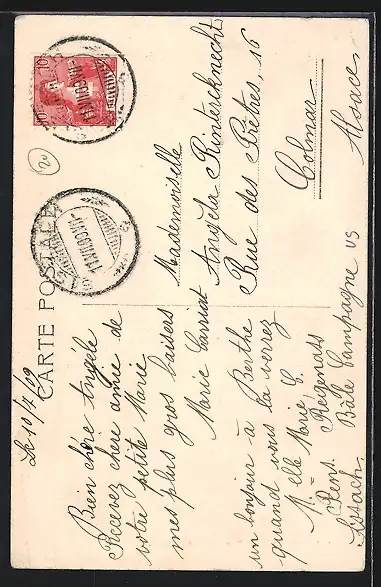 CARTE POSTALE
Le 10/4/09
Bien chère Angèle
Recevez chère amie de
votre petite Marie
mes plus gros baisers
Marie
un bonjour à Berthe
quand vous la verrez
Melle Marie C.
Pens.
Bâle Campagne
Mademoiselle
Angèle Rinterknecht
Rue des Prêtres, 16
Colmar
Alsace
10
20